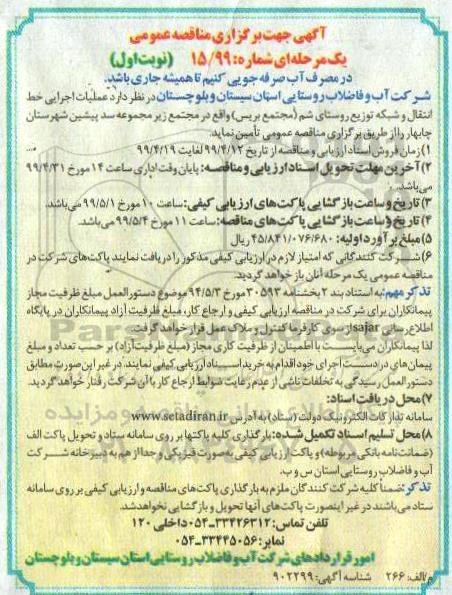 آگهی جهت برگزاری مناقصه عمومی
یک مرحله‌ای شماره: ۱۵/۹۹ (نوبت اول)
در مصرف آب صرفه جویی کنیم تا همیشه جاری باشد.
شرکت آب و فاضلاب روستایی استان سیستان و بلوچستان در نظر دارد عملیات اجرایی خط
انتقال و شبکه توزیع روستای شم (مجتمع بریس) واقع در مجتمع زیر مجموعه سد پیشین شهرستان
چابهار را از طریق برگزاری مناقصه عمومی تأمین نماید.
۱) زمان فروش اسناد ارزیابی و مناقصه از تاریخ ۹۹/۴/۱۲ لغایت ۹۹/۴/۱۹
۲) آخرین مهلت تحویل اسناد ارزیابی و مناقصه: پایان وقت اداری ساعت ۱۴ مورخ ۹۹/۴/۳۱
می‌باشد.
۳) تاریخ و ساعت بازگشایی پاکت‌های ارزیابی کیفی: ساعت ۱۰ مورخ ۹۹/۵/۱ می‌باشد.
۴) تاریخ و ساعت بازگشایی پاکت‌های مناقصه: ساعت ۱۱ مورخ ۹۹/۵/۴ می‌باشد.
۵) مبلغ برآورد اولیه: ۴۵/۸۴۱/۰۷۶/۶۸۰ ریال
۶) شرکت کنندگانی که امتیاز لازم در ارزیابی کیفی مذکور را دریافت نمایند پاکت‌های شرکت در
مناقصه عمومی یک مرحله آنان باز خواهد گردید.
تذکر مهم: به استناد بند ۲ بخشنامه ۳۰۵۹۳ مورخ ۹۴/۵/۳ موضوع دستورالعمل مبلغ ظرفیت مجاز
پیمانکاران برای شرکت در مناقصه ارزیابی کیفی و ارجاع کار، مبلغ ظرفیت آزاد پیمانکاران در پایگاه
اطلاع رسانی sajar از سوی کارفرما کنترل و ملاک عمل قرار خواهد گرفت.
لذا پیمانکاران می‌بایست با اطمینان از ظرفیت کاری مجاز (مبلغ ظرفیت آزاد) بر حسب تعداد و مبلغ
پیمان‌های در دست اجرای خود اقدام به خرید اسناد ارزیابی کیفی نمایند. در غیر این صورت مطابق
دستورالعمل رسیدگی به تخلفات ناشی از عدم رعایت ضوابط ارجاع کار با آن شرکت رفتار خواهد گردید.
۷) محل دریافت اسناد:
سامانه تدارکات الکترونیک دولت (ستاد) به آدرس www.setadiran.ir
۸) محل تسلیم اسناد تکمیل شده: بارگذاری کلیه پاکتها بر روی سامانه ستاد و تحویل پاکت الف
(ضمانت‌نامه بانکی مربوطه) و پاکت ارزیابی کیفی به صورت فیزیکی و جدا از هم به دبیرخانه شرکت
آب و فاضلاب روستایی استان س و ب.
تذکر: ضمناً کلیه شرکت کنندگان ملزم به بارگذاری پاکت‌های مناقصه و ارزیابی کیفی بر روی سامانه
ستاد می‌باشند در غیر اینصورت پاکت‌های آنها تحویل و بازگشایی نخواهد شد.
تلفن تماس: ۳۳۴۲۶۳۱۲-۰۵۴ داخلی ۱۲۰
نمابر: ۳۳۴۴۵۰۵۶-۰۵۴
امور قراردادهای شرکت آب و فاضلاب روستایی استان سیستان و بلوچستان
م/الف: ۲۶۶ شناسه آگهی: ۹۰۲۲۹۹